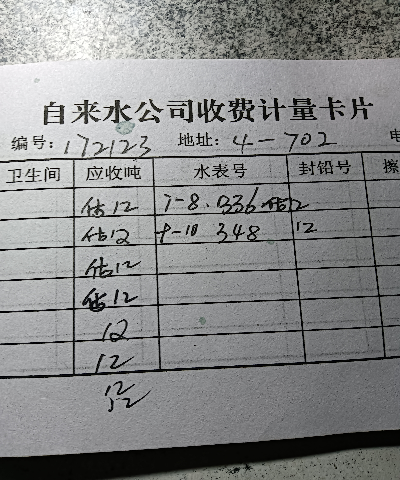 自来水公司收费计量卡片
编号: 172123 地址: 4-702 电
卫生间 应收吨 水表号 封铅号 擦
估12 7-8. 336 估12
估12 9-10 348 12
估12
估12
12
12
12
12